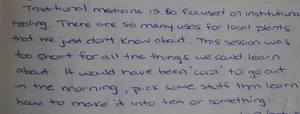 Traditional medicine is so focused on institutional
healing. There are so many uses for local plants
that we just don't know about. This session was
too short for all the things we could learn
about. It would have been "cool" to go out
in the morning, pick some stuff then learn
how to make it into tea or something